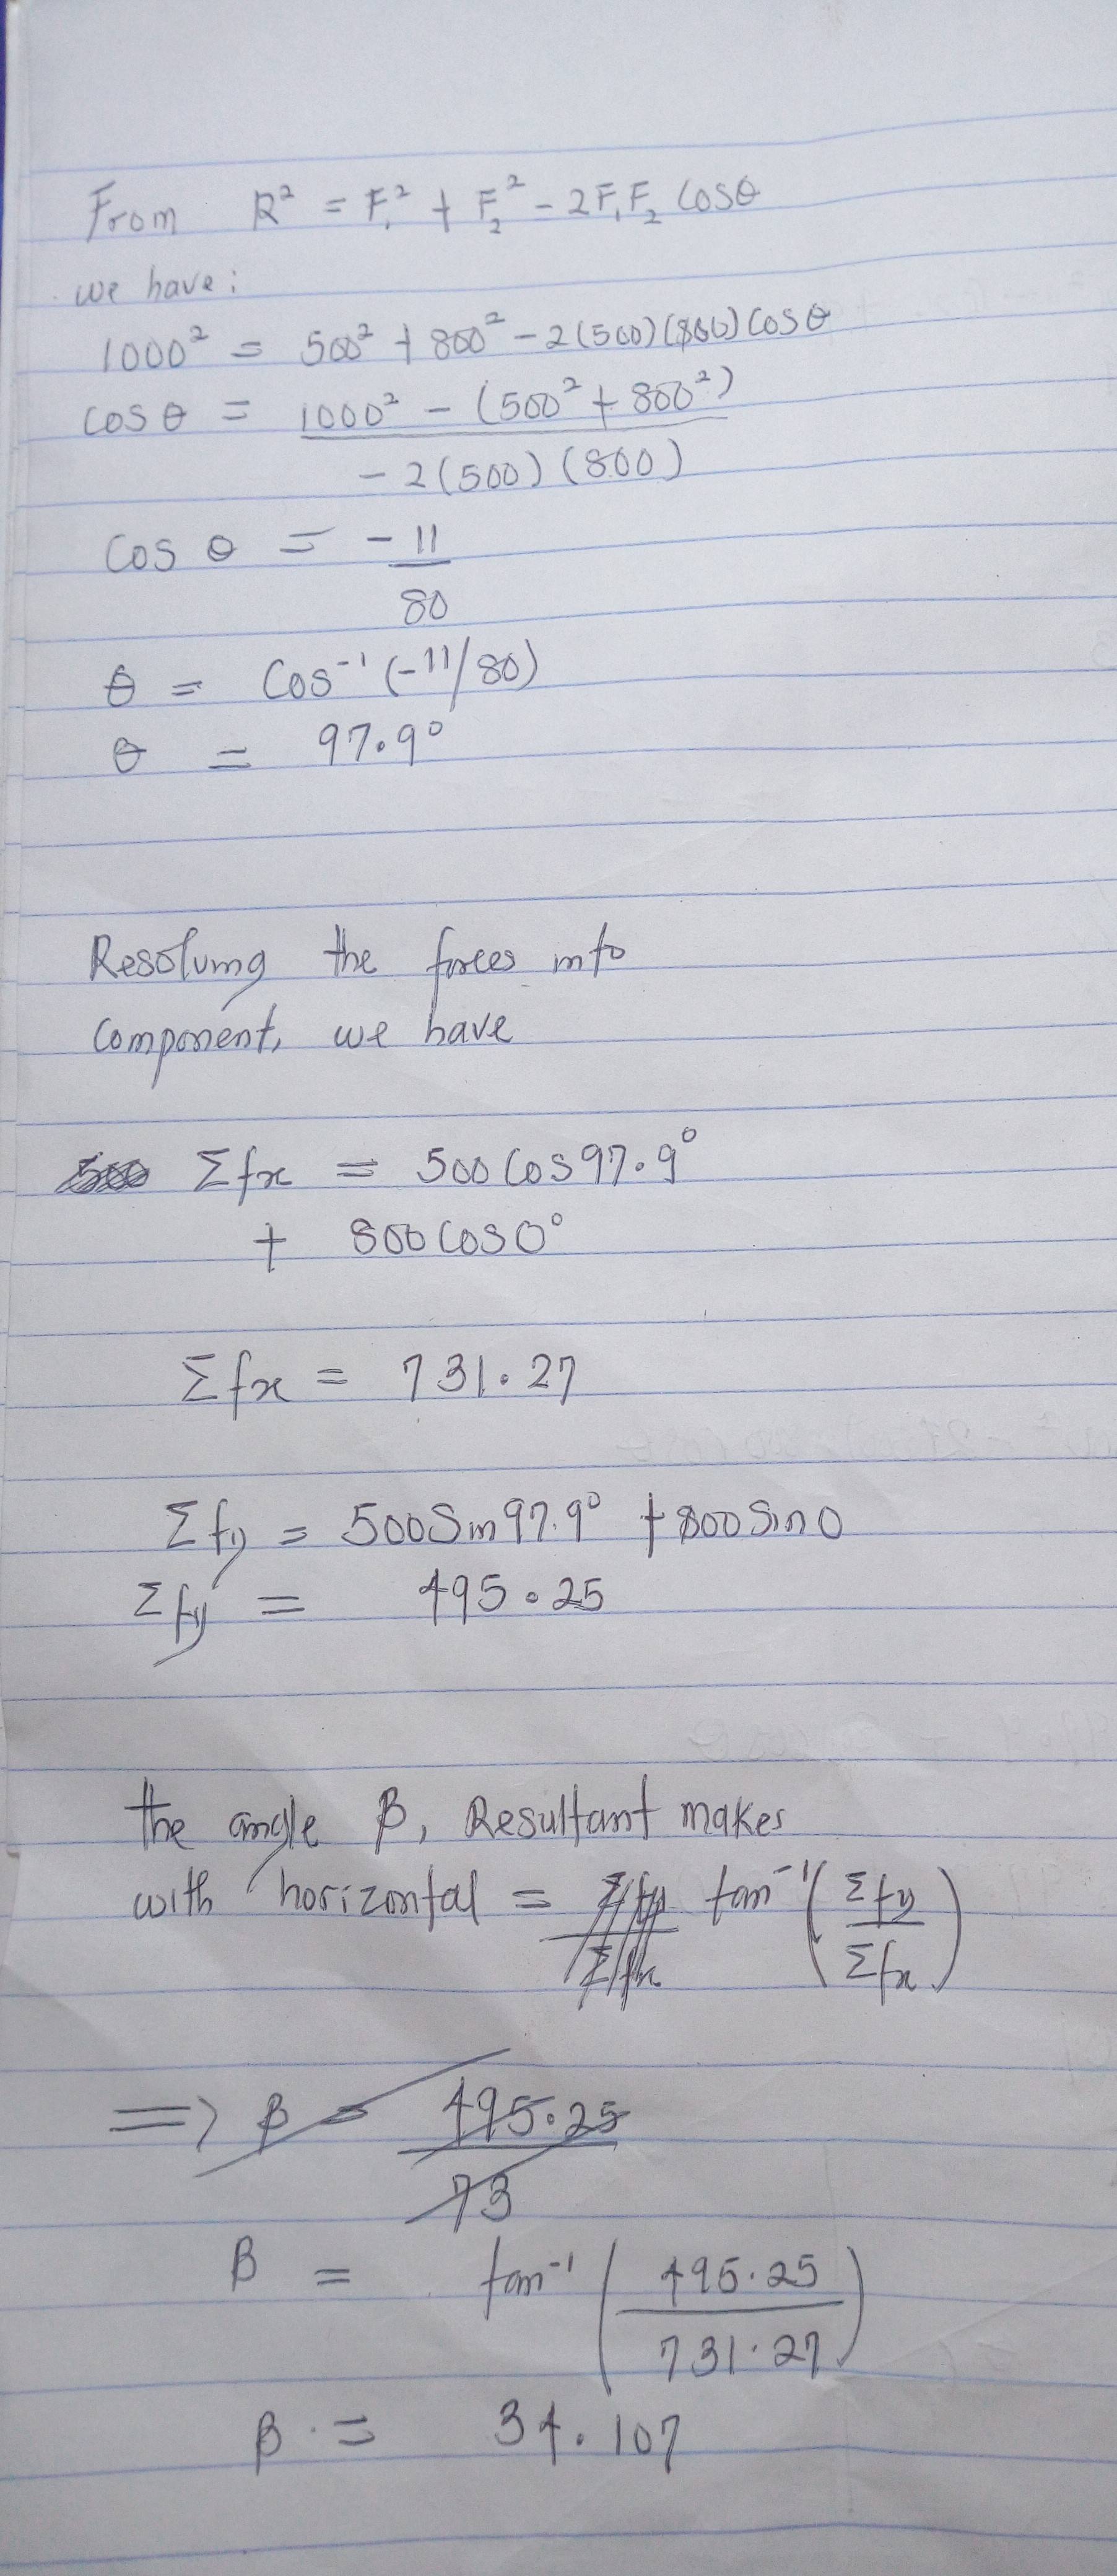 From R² = F₁² + F₂² - 2F₁F₂ Cosθ
we have:
1000² = 500² + 800² - 2(500)(800) Cosθ
Cosθ = 1000² - (500² + 800²)
- 2(500)(800)
Cos θ = - 11
80
θ = Cos⁻¹(-11/80)
θ = 97.9°
Resolving the forces into
Component, we have
Σfx = 500 Cos 97.9°
+ 800 Cos 0°
Σfx = 731.27
Σfy = 500 Sin 97.9° + 800 Sin 0
Σfy = 495.25
the angle β, Resultant makes
with horizontal = tan⁻¹(Σfy
Σfx)
=> β = 495.25
73
β = tan⁻¹(495.25
731.27)
β = 34.107